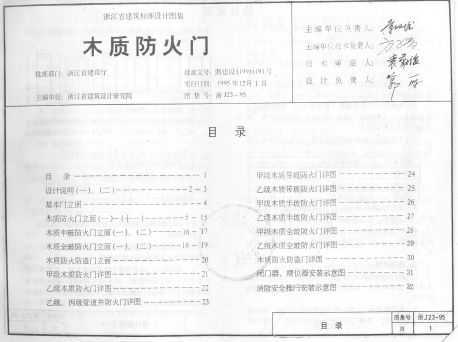 浙江省建筑标准设计图集
木质防火门
批准部门：浙江省建设厅
主编单位：浙江省建筑设计研究院
批准文号：浙建设(1995)191号
实行日期：1995年12月1日
图集号：浙J23-95
主编单位负责人：
主编单位技术负责人：
技术审定人：
设计负责人：
目录
目录 1
设计说明(一)、(二) 2-3
基本门立面 4
木质防火门立面(一)-(十一) 5-15
木质半玻防火门立面(一)、(二) 16-17
木质全玻防火门立面(一)、(二) 18-19
木质防火防盗门立面 20
甲级木质防火门详图 21
乙级木质防火门详图 22
乙级、丙级管道井防火门详图 23
甲级木质带玻防火门详图 24
乙级木质带玻防火门详图 25
甲级木质半玻防火门详图 26
乙级木质半玻防火门详图 27
甲级木质全玻防火门详图 28
乙级木质全玻防火门详图 29
木质防火防盗门详图 30
闭门器、顺位器安装示意图 31
消防安全推杆安装示意图 32
目录
图集号 浙J23-95
页 1